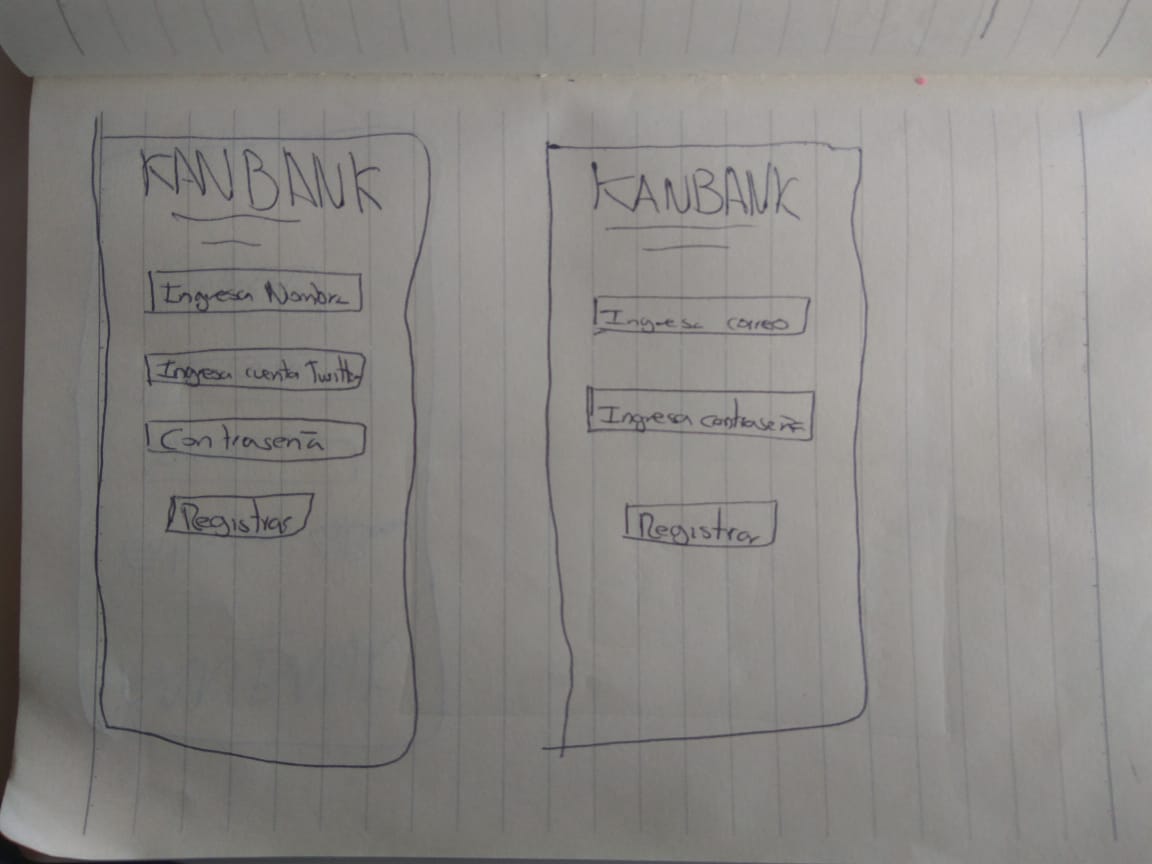 KANBANK
Ingresa Nombre
Ingresa cuenta Twitter
Contraseña
Registrar
KANBANK
Ingresa correo
Ingresa contraseña
Registrar